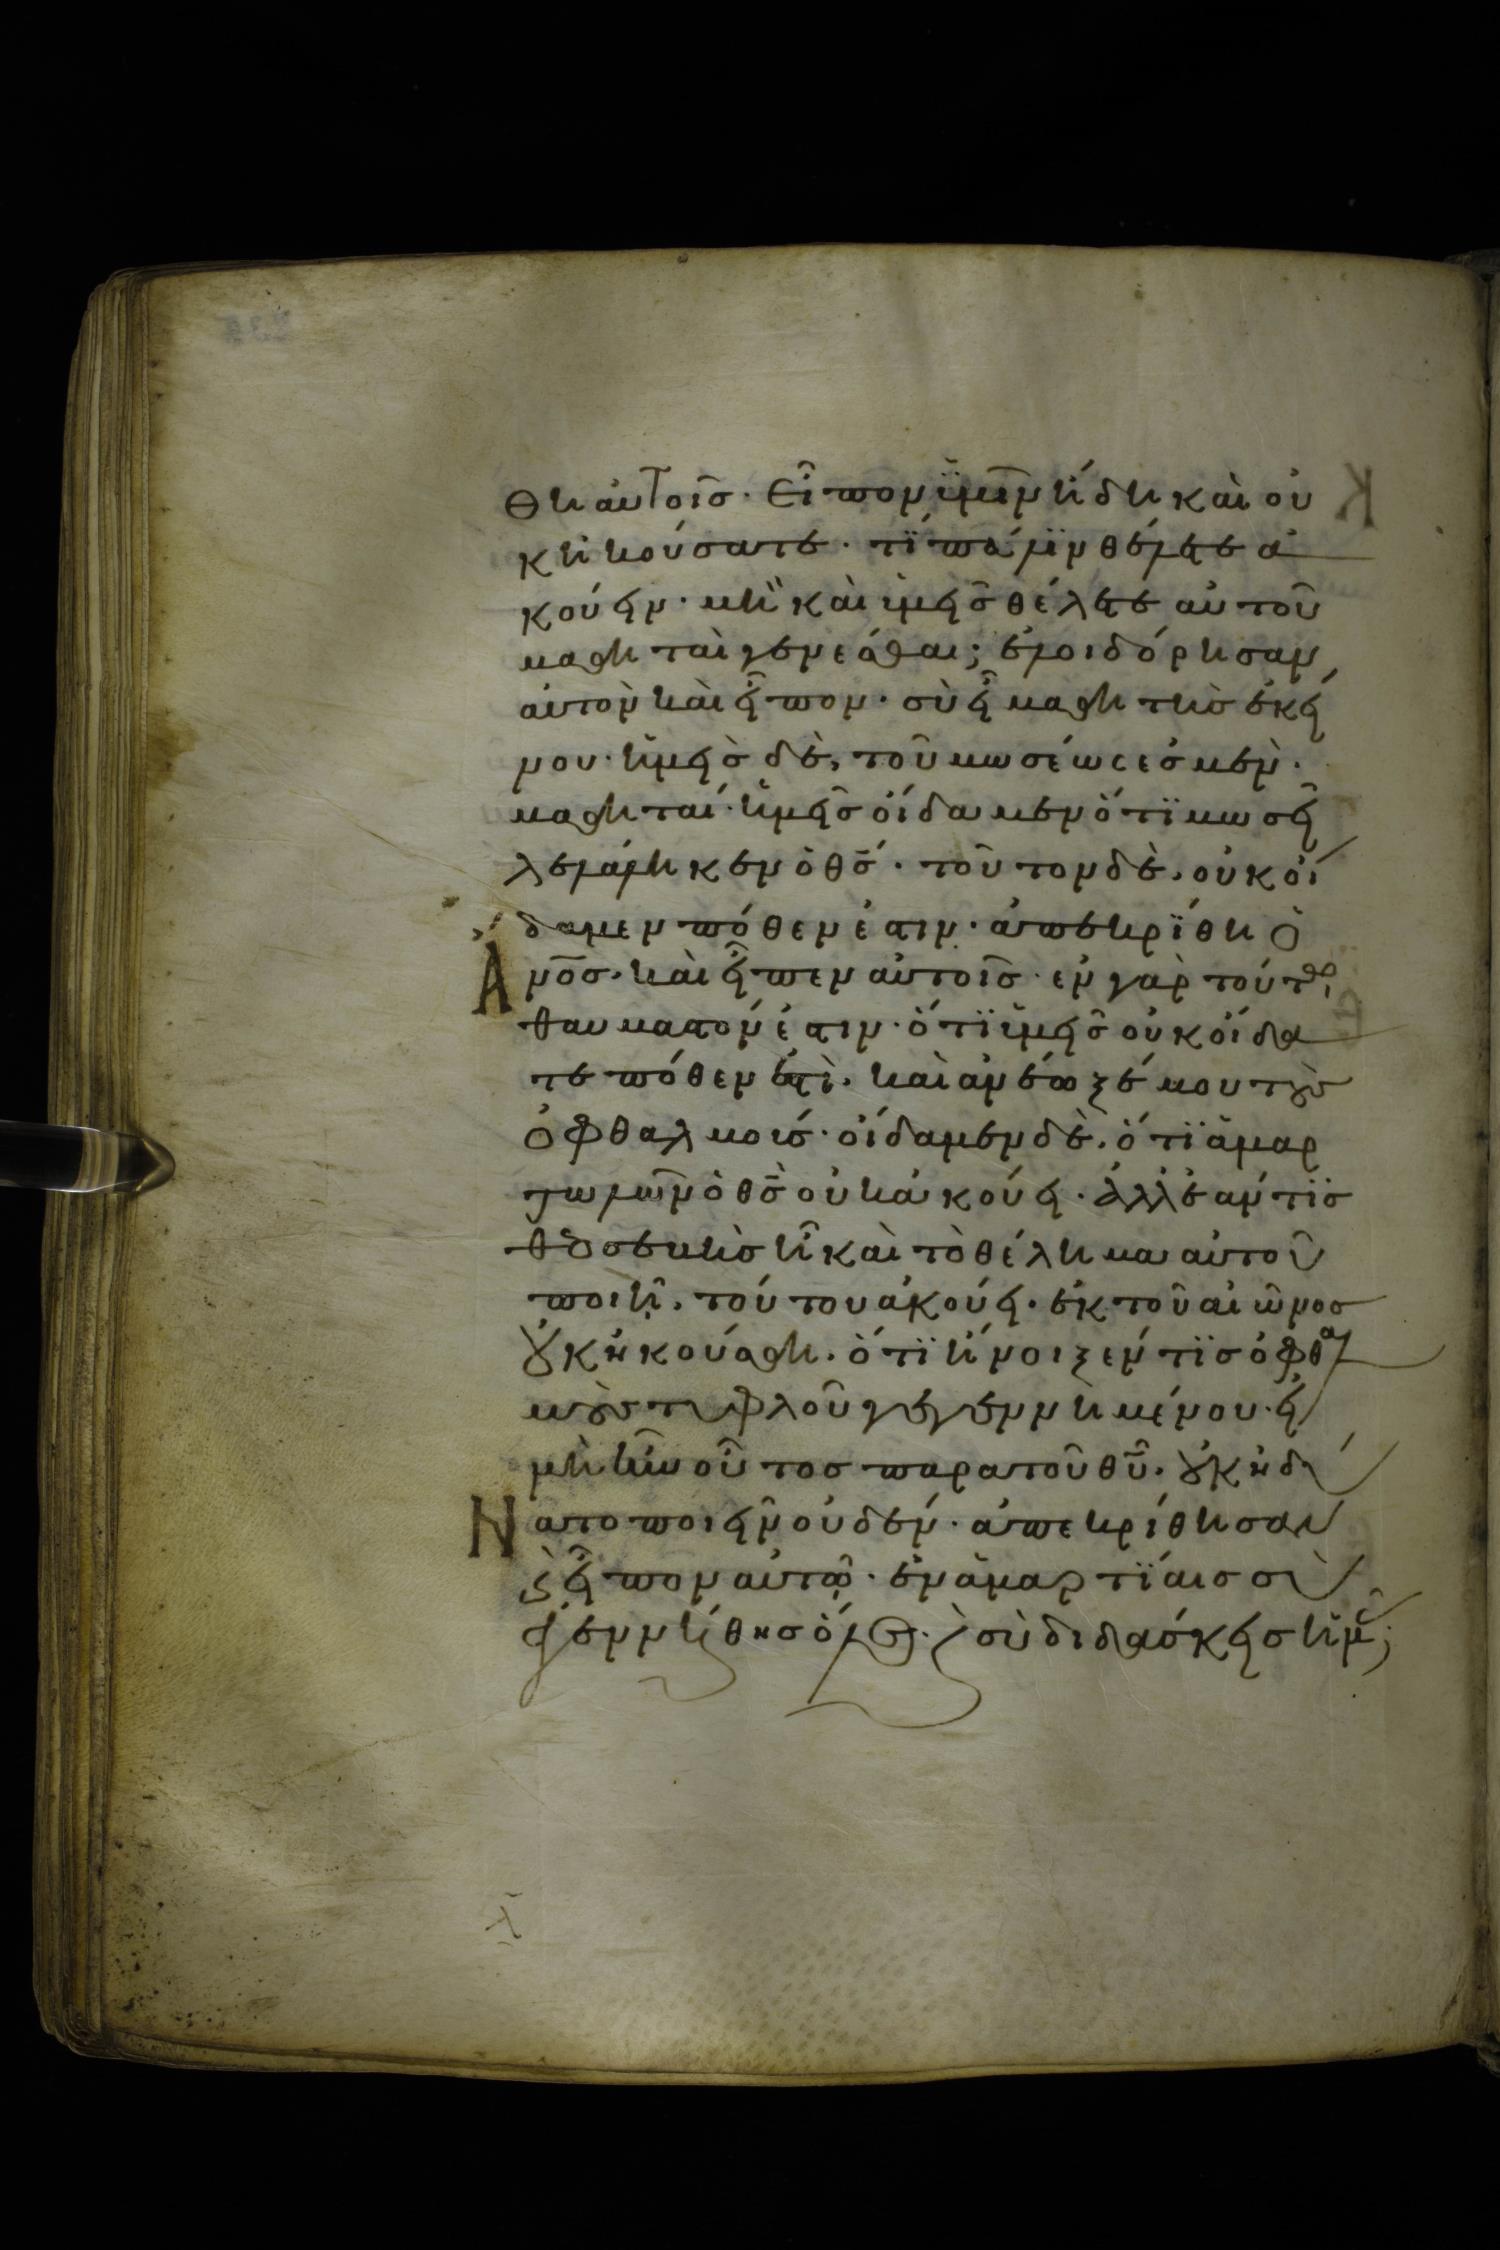 θη αὐτοῖσ· Εἶπον ὑμῖν ἤδη καὶ οὐ
κ ἠκούσατε· τί πάλϊν θέλετε ἀ
κούειν· μὴ καὶ ὑμεῖσ θέλετε αὐτοῦ
μαθηταὶ γενεσθαι; ἐλοιδόρησαν
αὐτὸν καὶ εἶπον· σὺ εἶ μαθητὴσ ἐκεί
νου· ἡμεῖσ δὲ, τοῦ μωσέως ἐσμὲν·
μαθηταί· ἡμεῖσ οἴδαμεν ὅτϊ μωσεῖ
λελάληκεν ὁ θσ· τοῦτον δὲ, οὐκ οἴ
δαμεν πόθεν ἐστιν· ἀπεκρίθη ὁ
Α νοσ· καὶ εἶπεν αὐτοῖσ· εν γαρ τούτω
θαυμαστόν ἐστιν· ὅτϊ ὑμεῖσ οὐκ οἴδα
τε πόθεν ἐστὶ· καὶ ἀνέωξέ μου τοὺσ
ὀφθαλμοισ· οἴδαμεν δὲ, ὅτϊ ἁμαρ
τωλῶν ὁ θσ οὐκ ἀκούει· ἀλλ' ἐάν τϊσ
θεοσεβὴσ ἦ καὶ τὸ θέλημα αὐτοῦ
ποιῆ, τούτου ἀκούει· ἐκ τοῦ αἰῶνοσ
οὐκ ἠκούσθη· ὅτϊ ἤνοιξεν τϊσ ὀφθαλ
μοὺσ τυφλοῦ γεγεννημένου· εἰ
μὴ ἦν οὗτοσ παρα τοῦ θυ· οὐκ ἠδύ
Ν ατο ποιεῖν οὐδέν· ἀπεκρίθησαν
καὶ εἶπον αὐτῶ· ἐν ἁμαρτίαισ σὺ
γεννήθησ ὅλοσ· καὶ σὺ διδάσκεισ ἡμᾶσ;